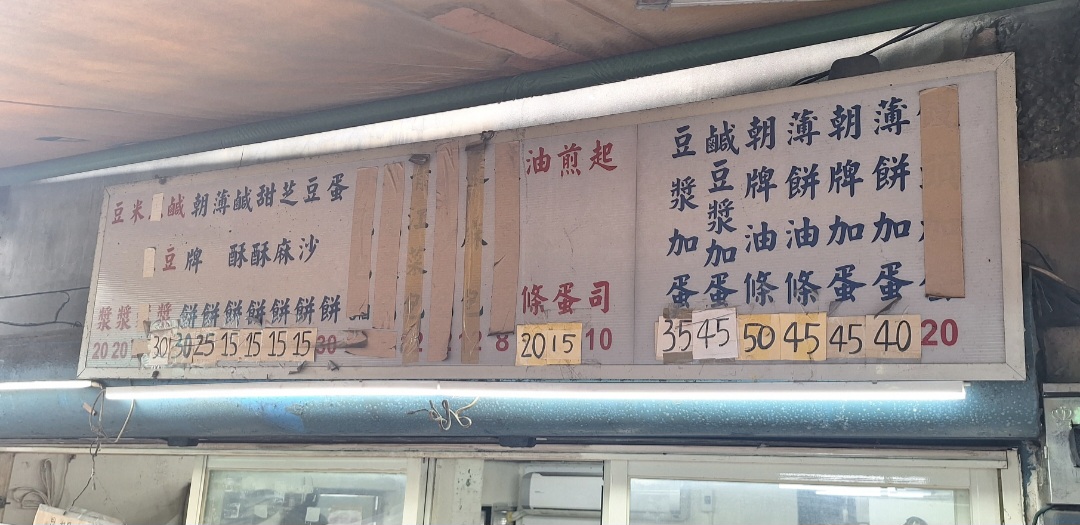 豆漿 20
米漿 20
鹹豆漿 30
朝牌餅 30
薄餅 25
鹹酥餅 15
甜酥餅 15
芝麻餅 15
豆沙餅 15
蛋餅 30
8
油條 20
煎蛋 15
起司 10
豆漿加蛋 35
鹹豆漿加蛋 45
朝牌油條 50
薄餅油條 45
朝牌加蛋 45
薄餅加蛋 40
20